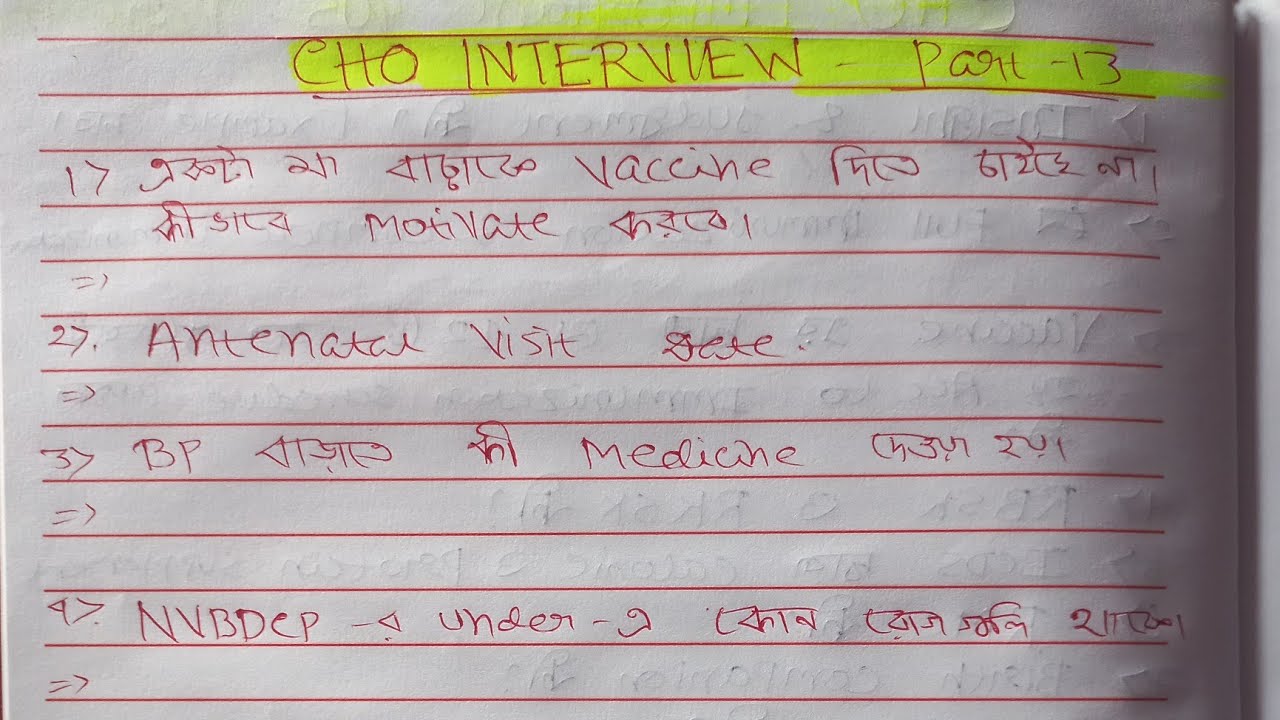 CHO INTERVIEW - Part -13
1> একটা মা বাচ্চাকে vaccine দিতে চাইছে না।
কীভাবে motivate করবে।
=>
2>. Antenatal visit date.
=>
3> BP বাড়াতে কী medicine দেওয়া হয়।
=>
4>. NVBDCP -র under-এ কোন রোগ গুলি থাকে।
=>